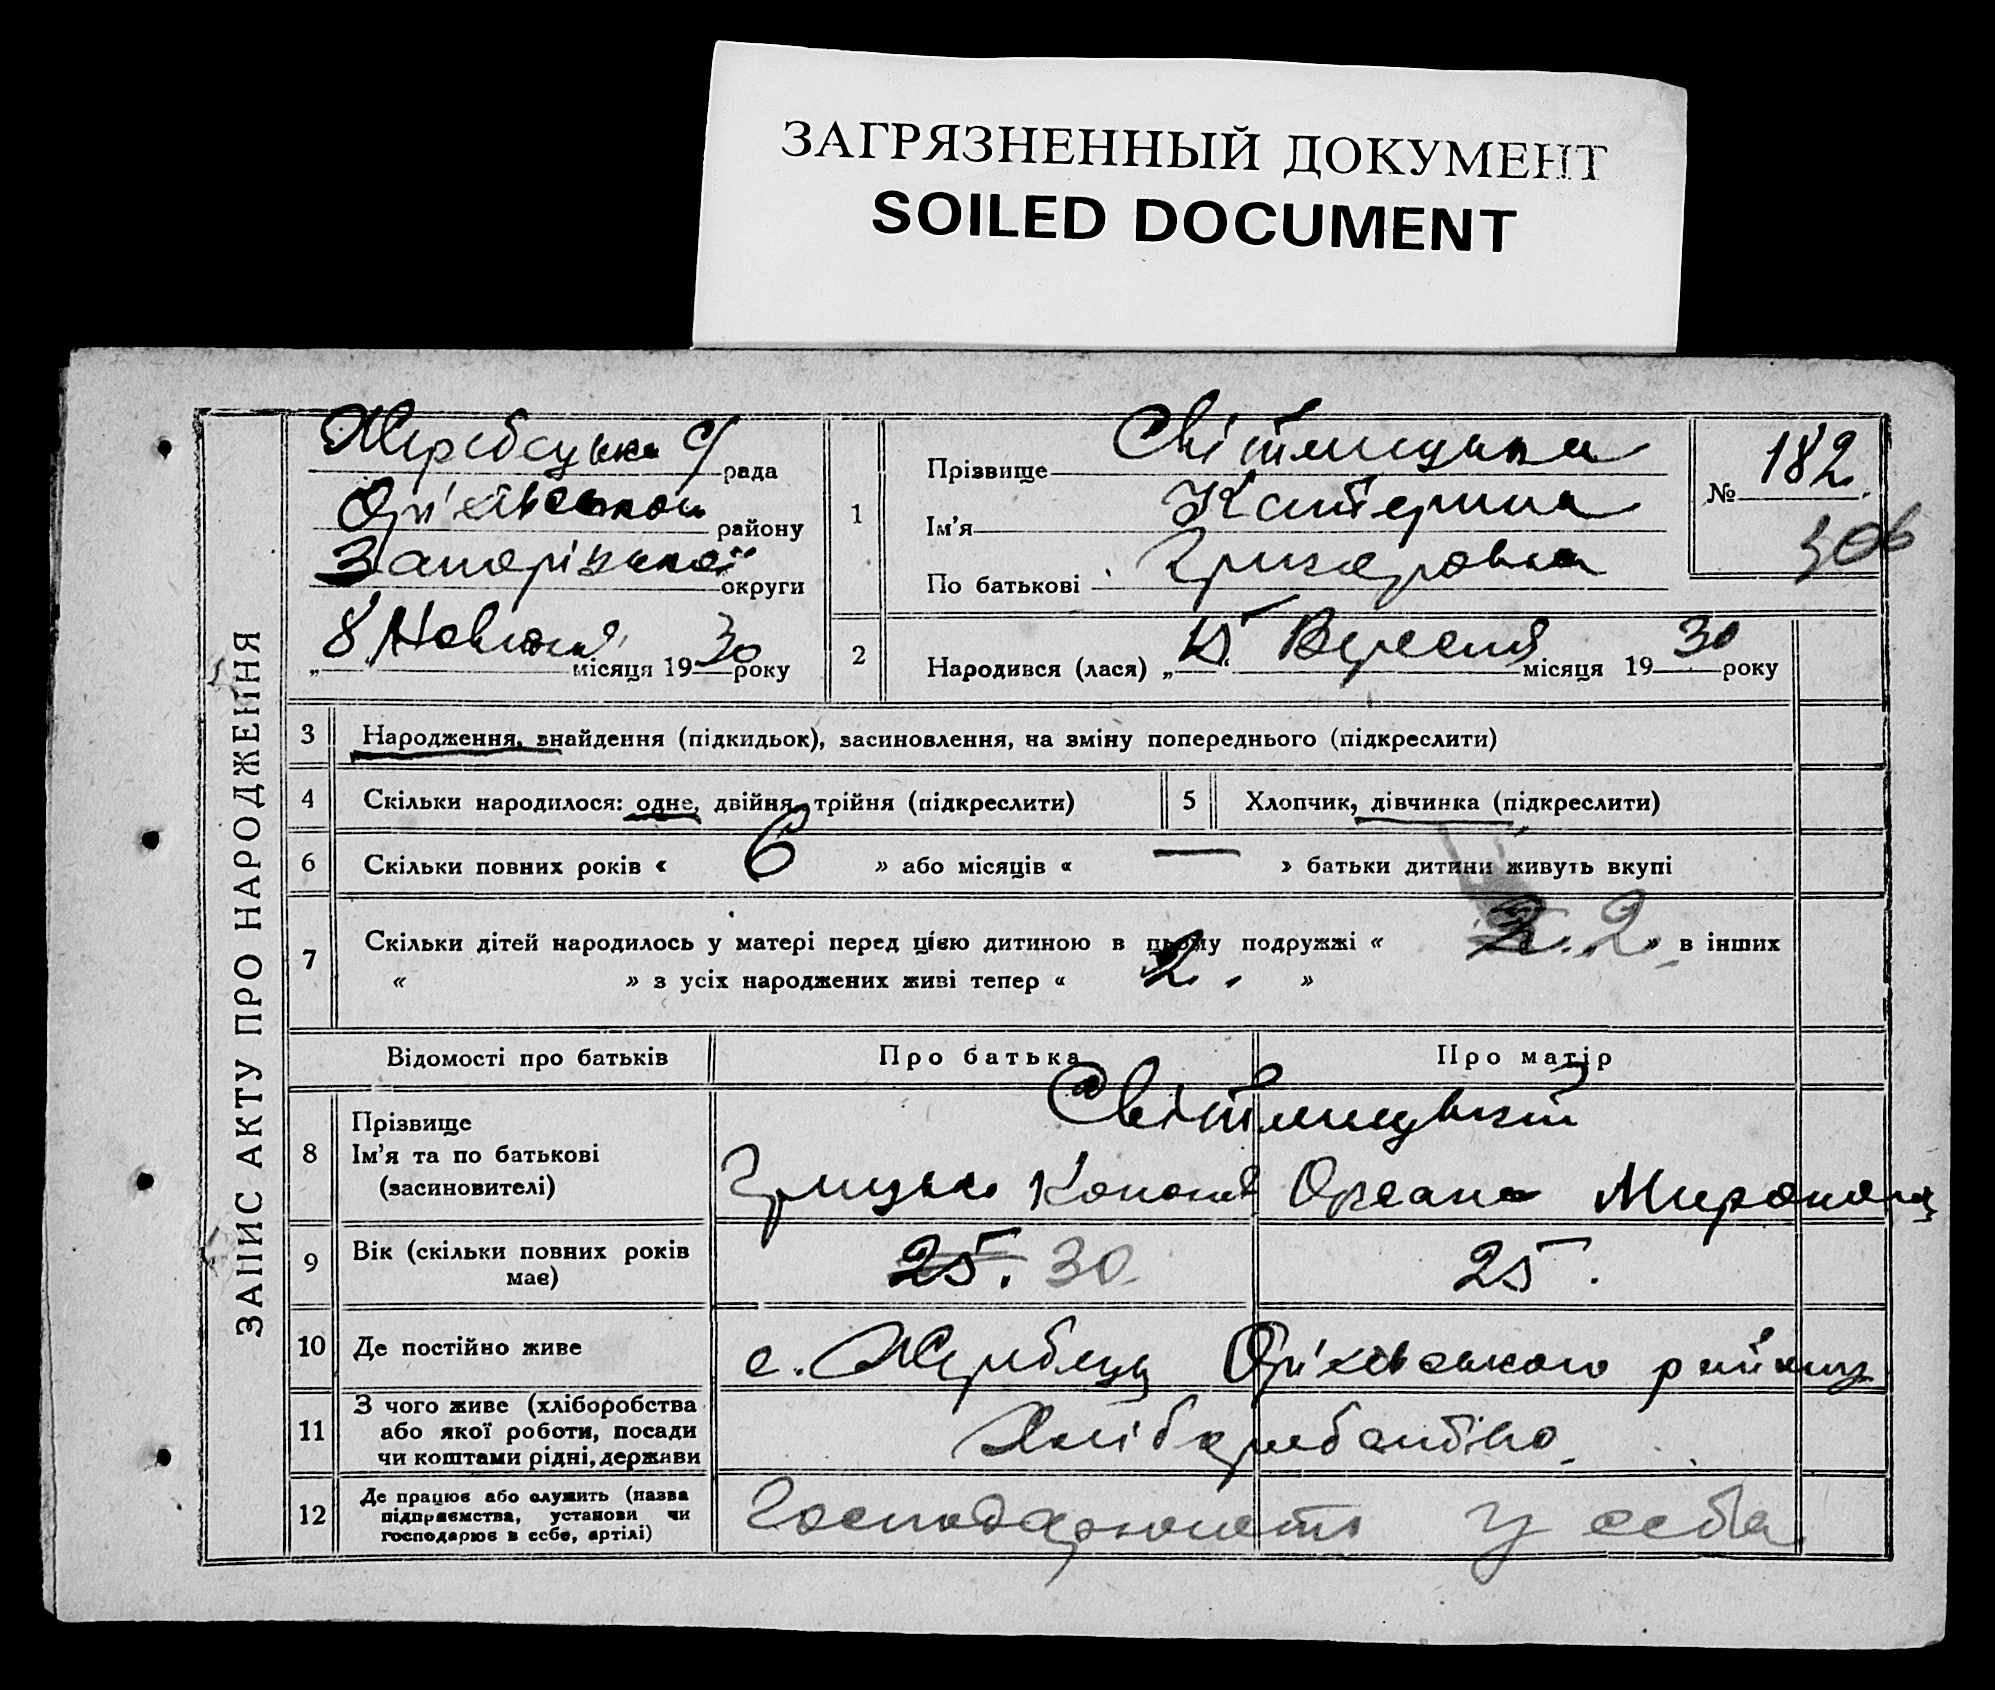 ЗАГРЯЗНЕННЫЙ ДОКУМЕНТ
SOILED DOCUMENT
ЗАПИС АКТУ ПРО НАРОДЖЕННЯ
Жеребецька с/рада
Оріхівського району
Запорізької округи
„8 місяця 1930 року
1
Прізвище Світлицька
Ім'я Катерина
По батькові Григоровна
№ 182
306
2 Народився (лася) „ " Вересня місяця 1930 року
3 Народження, знайдення (підкидьок), засиновлення, на зміну попереднього (підкреслити)
4 Скільки народилося: одне, двійня, трійня (підкреслити) 5 Хлопчик, дівчинка (підкреслити)
6 Скільки повних років « 6 » або місяців « — » батьки дитини живуть вкупі
7 Скільки дітей народилось у матері перед цією дитиною в цьому подружжі « 2. 2. » в інших
« » з усіх народжених живі тепер « 2. »
Відомості про батьків Про батька Про матір
Світлицькій
8 Прізвище
Ім'я та по батькові
(засновителі)
Грицько Конон Оксана Мирон
9 Вік (скільки повних років має) 25. 30. 25.
10 Де постійно живе с. Жеребець Оріхівського району
11 З чого живе (хліборобства
або якої роботи, посади
чи коштами рідні, держави
Хліборобство.
12 Де працює або служить (назва
підприємства, установи чи
господарює в себе, артілі)
Господарюють у себе